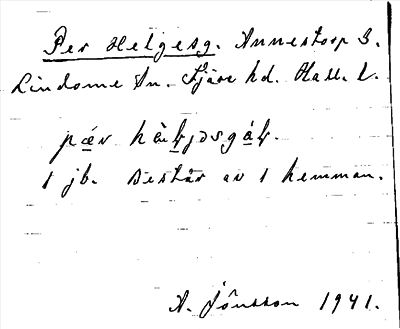 Per Helgesg. Annestorp 3.
Lindome sn. Fjäre hd. Hall. l.
1 jb. Består av 1 hemman.
A. Jönsson 1941.